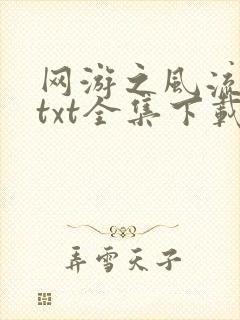 网游之风流
txt全集下载
弄雪天子